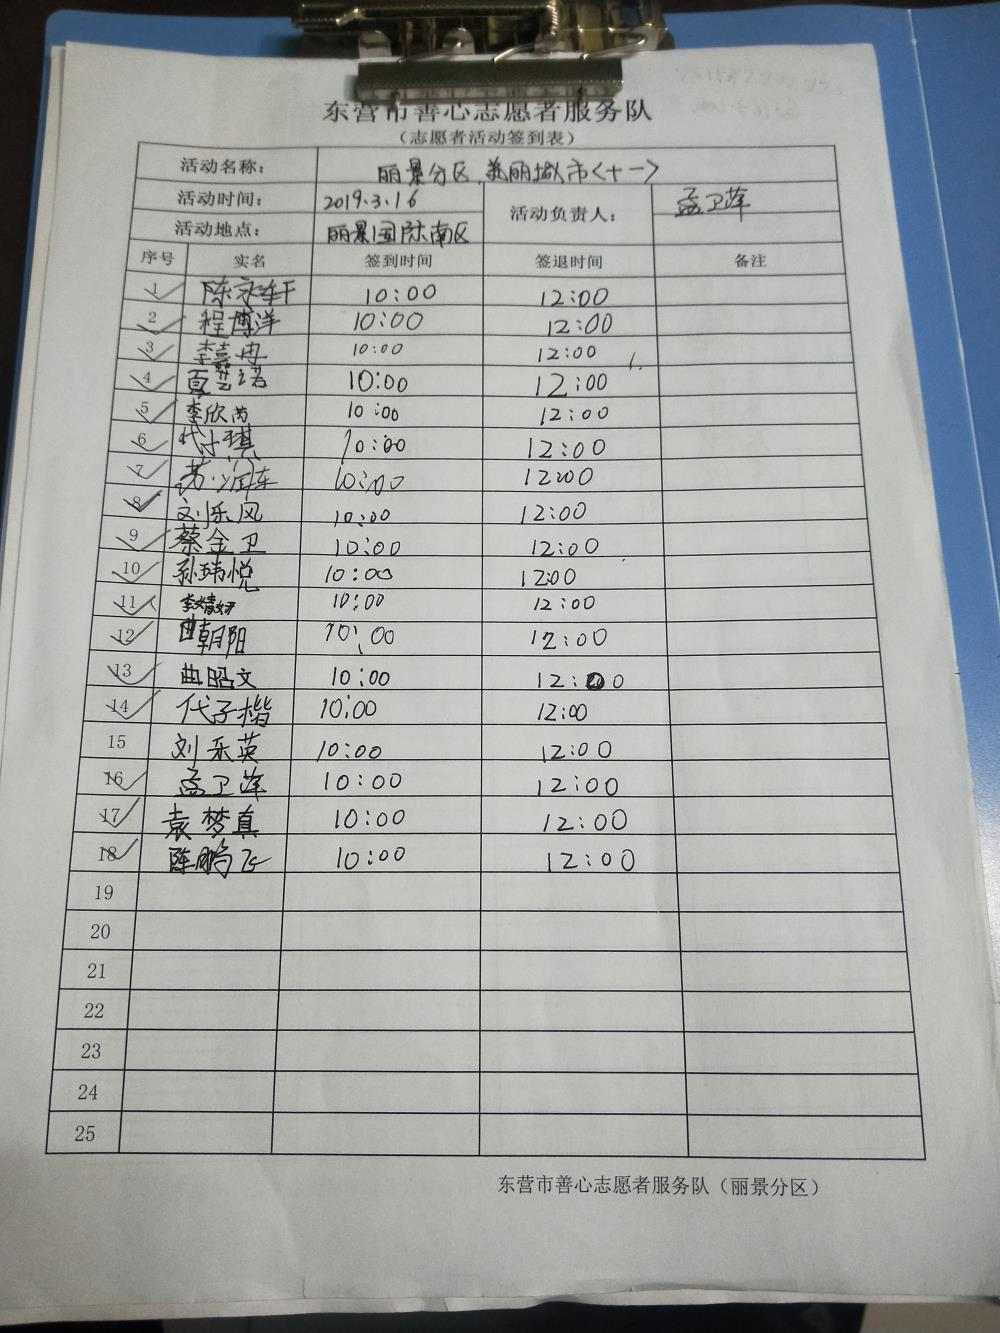 东营市善心志愿者服务队
（志愿者活动签到表）
活动名称： 丽景分区.美丽城市<十一>
活动时间： 2019.3.16 活动负责人： 孟卫萍
活动地点： 丽景国际南区
序号 实名 签到时间 签退时间 备注
1 陈永轩 10:00 12:00
2 程博洋 10:00 12:00
3 李嘉冉 10:00 12:00
4 夏艺诺 10:00 12:00
5 李欣芮 10:00 12:00
6 代小琪 10:00 12:00
7 苏润东 10:00 12:00
8 刘乐风 10:00 12:00
9 蔡金卫 10:00 12:00
10 孙玮悦 10:00 12:00
11 李婧妍 10:00 12:00
12 曲朝阳 10:00 12:00
13 曲昭文 10:00 12:00
14 代子楷 10:00 12:00
15 刘乐英 10:00 12:00
16 孟卫萍 10:00 12:00
17 袁梦真 10:00 12:00
18 陈鹏飞 10:00 12:00
19
20
21
22
23
24
25
东营市善心志愿者服务队（丽景分区）